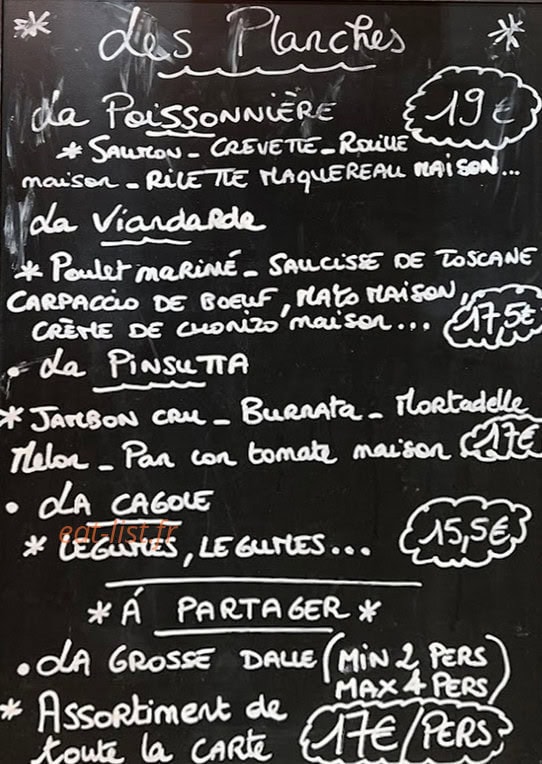 * des Planches *
La Poissonnière 19€
* Saumon - Crevette - Rouille
maison - Rilette Maquereau maison...
La Viandarde
* Poulet mariné - Saucisse de Toscane
Carpaccio de boeuf, Mayo maison,
Crème de chorizo maison... 17,5€
• La Pinsutta
* Jambon cru - Burrata - Mortadelle
Melon - Pan con tomate maison 17€
• La Cagole
eat-list.fr
* Légumes, Legumes... 15,5€
* Á Partager *
• La Grosse Dalle (Min 2 Pers
Max 4 Pers)
* Assortiment de
toute la carte 17€/Pers